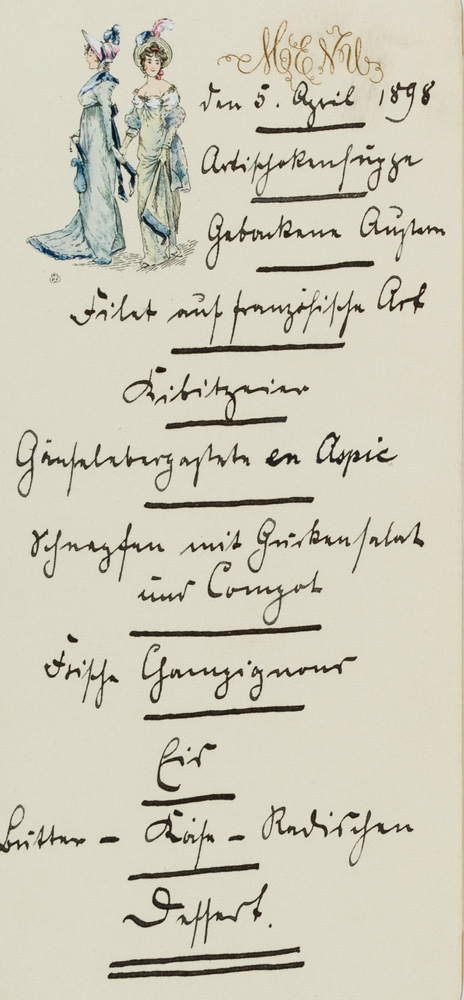 MENU
den 5. April 1898
Artischokensuppe
Gebackene Austern
Filet auf französische Art
Kibitzeier
Gänseleberpastete en Aspic
Schnepfen mit Gurkensalat
und Compot
Frische Champignons
Eis
Butter - Käse - Radischen
Dessert.